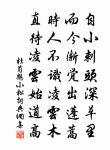 自小刺頭深草里
而今漸覺出蓬蒿
時人不識凌雲木
直待凌雲始道高
杜荀鶴小松胡興儒書